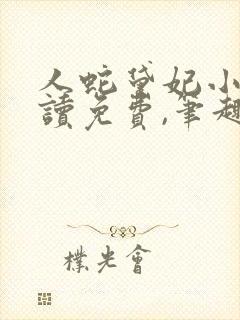 人蛇黛妃小
讀免費,筆趣
樸光會